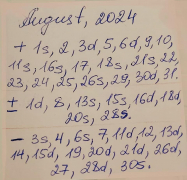 August, 2024
+ 1s, 2, 3d, 5, 6d, 9, 10,
11s, 16s, 17, 18s, 21s, 22,
23, 24, 25, 26s, 29, 30d, 31.
± 1d, 8, 13s, 15s, 16d, 18d,
20s, 28s.
- 3s, 4, 6s, 7, 11d, 12, 13d,
14, 15d, 19, 20d, 21d, 26d,
27, 28d, 30s.